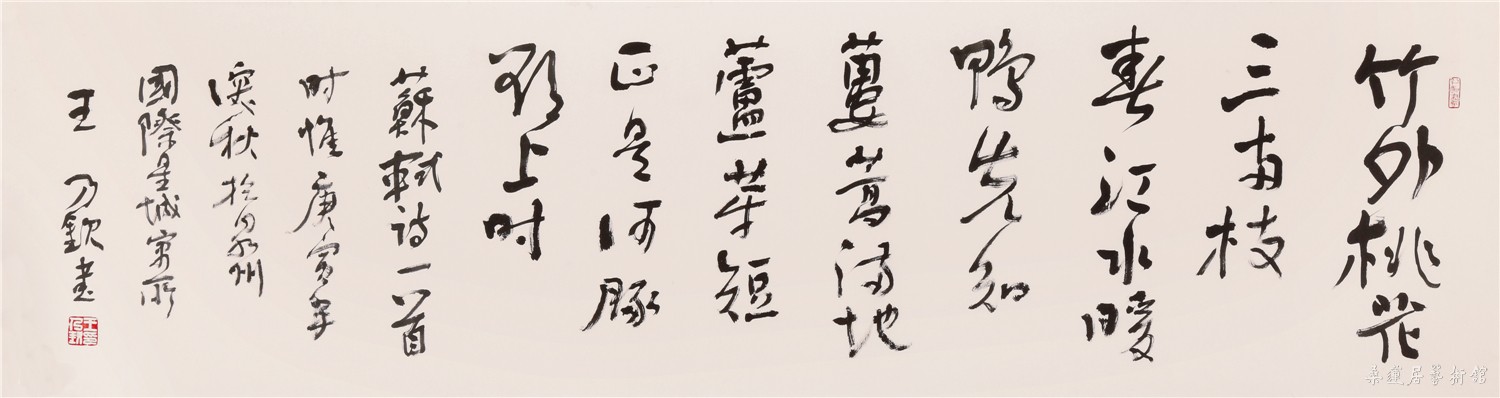 竹外桃花
三两枝
春江水暖
鸭先知
蒌蒿满地
蘆芽短
正是河豚
欲上时
蘇軾诗一首
时惟庚寅年
深秋於泉州
國際星城寓所
王乃欽书
王乃钦
桑蓮居藝術馆